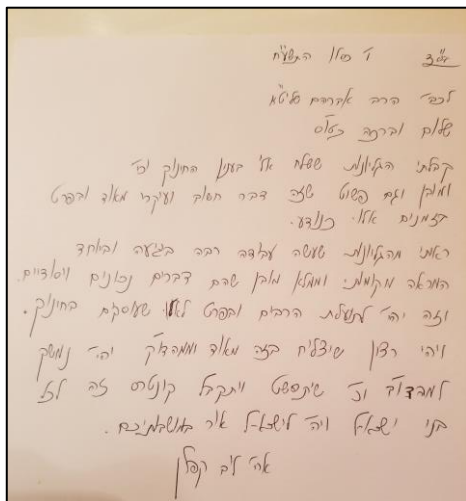 בס"ד ו' כסלו התשע"ח
לכב' הרה אברהם שליט"א
שלום וברכה כט"ס
קבלתי הגליונות ששלח אלי בענין החינוך וכו'
ומובן וגם פשוט שזה דבר חשוב ועיקרי מאוד ובפרט
בזמנים אלו. כנודע.
ראיתי מהגליונות שעשה עבודה רבה ביגיעה ובאחד
המראה מקומות. וממילא מובן שהם דברים נכונים ויסודיים.
וזה יהי' לתועלת הרבים ובפרט לאלו שעוסקים בחינוך.
ויהי רצון שיצליח בזה מאוד וממהדק יהי' נמשך
וכו' שיתפשט ויתקבל קונטרס זה לכל
בני ישראל ויה' לישראל אור במושבותיכם.
אר' ליב קפלן